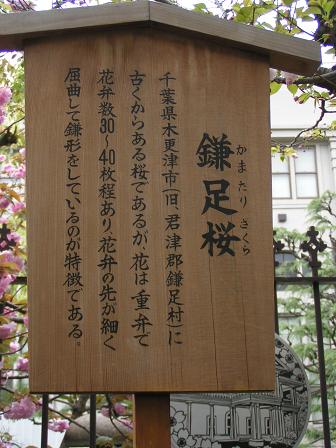 鎌足桜
かまたりさくら
千葉県木更津市(旧、君津郡鎌足村)に
古くからある桜であるが、花は重弁で
花弁数30〜40枚程あり、花弁の先が細く
屈曲して鎌形をしているのが特徴である。